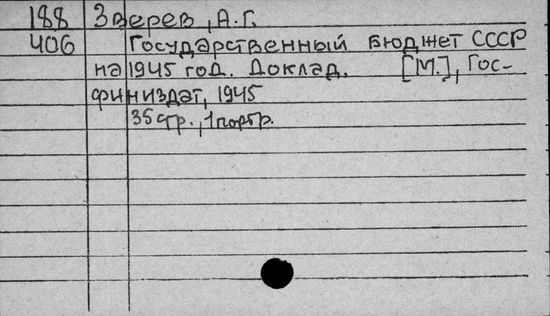 188 Зверев, А.Г.
406 Государственный бюджет СССР
на 1945 год. Доклад. [М.], Гос-
финиздат, 1945
35 стр., 1 портр.